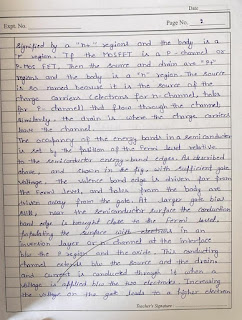 Date
Expt. No.
Page No. 2
Signified by a "n+" regions and the body is a
"p" region. If the MOSFET is a P-channel or
P-MOS FET, then the source and drain are "P+"
regions and the body is a "n" region. The source
is so named because it is the source of the
charge carriers electrons for n-channel, holes
for P-channel) that flow through the channel
similarly, the drain is where the charge carriers
leave the channel.
The occupancy of the energy bands in a semiconductor
is set by the position of the Fermi level relative
to the semiconductor energy-band edges. As described
above, and shown in the fig, with sufficient gate
voltage, the valence band edge is driven far from
the Fermi level, and holes from the body are
driven away from the gate. At larger gate bias
still, near the semiconductor surface the conduction
band edge is brought close to the Fermi level,
populating the surface with electrons in an
inversion layer or n channel at the interface
b/w the P region and the oxide. This conducting
channel extends b/w the source and the drain,
and current is conducted through it when a
voltage is applied b/w the two electrodes. Increasing
the voltage on the gate leads to a higher electron
Teacher's Signature